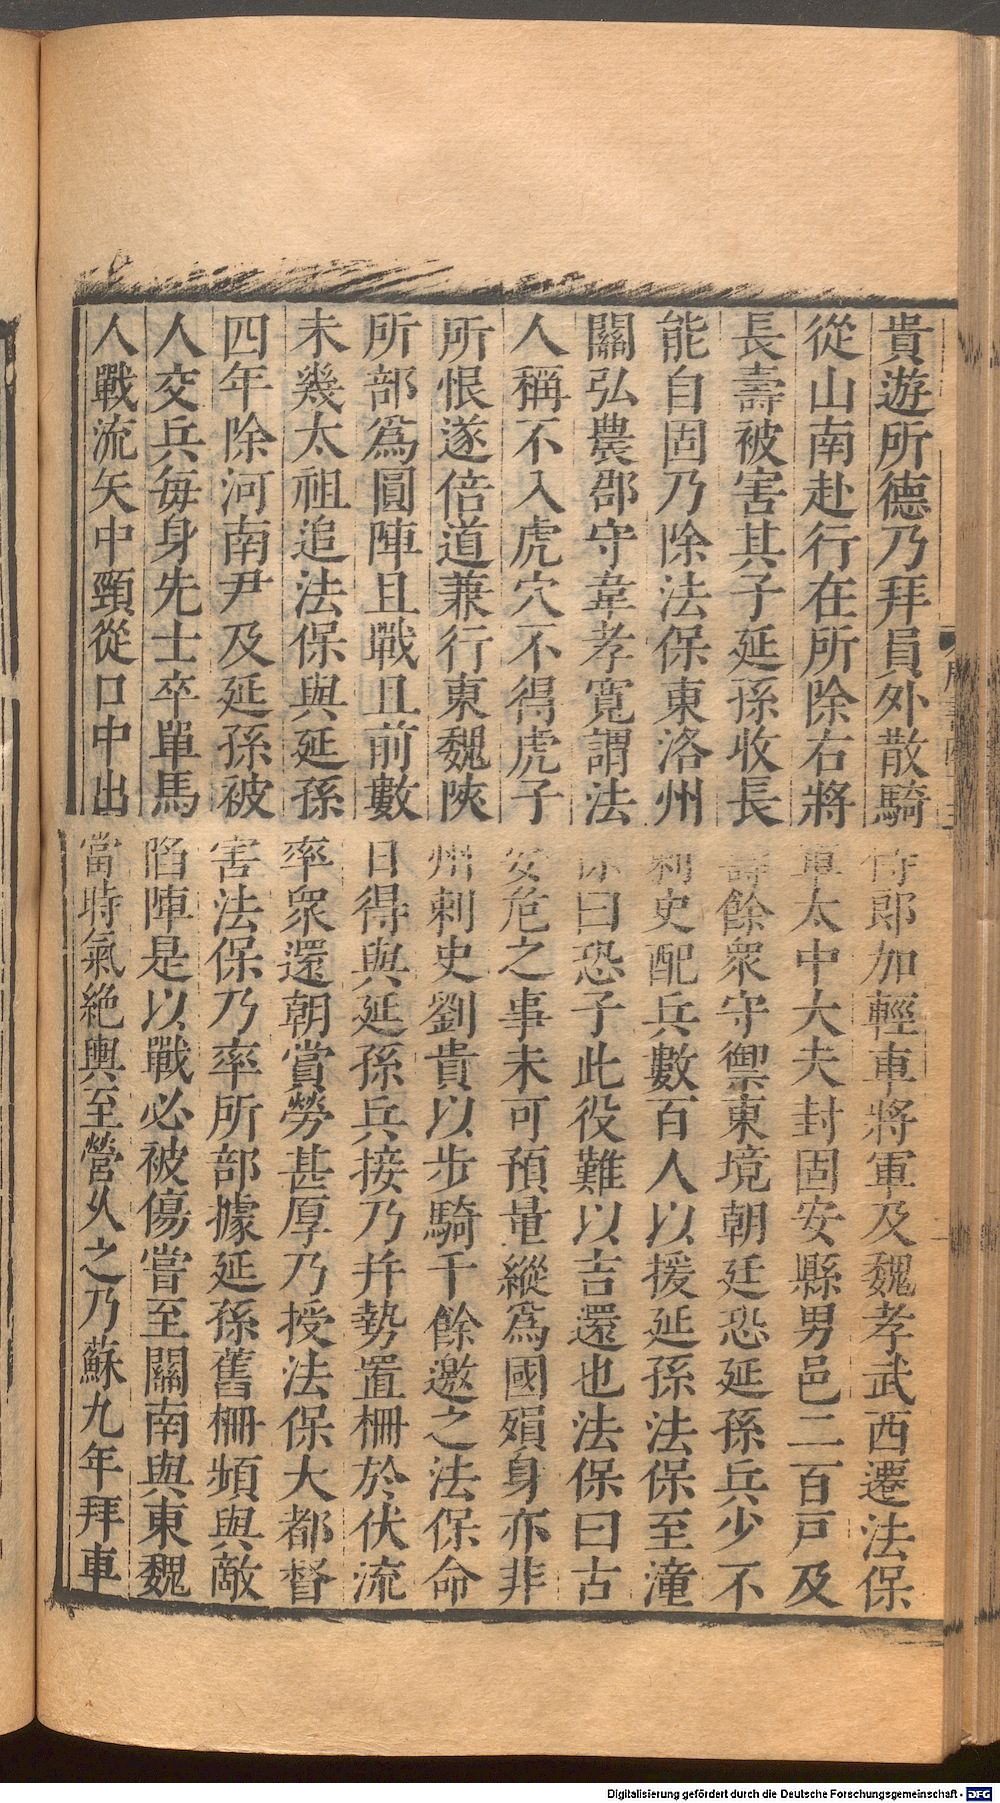 貴遊所德乃拜員外散騎侍郎加輕車將軍及魏孝武西遷法保
從山南赴行在所除右將軍太中大夫封固安縣男邑二百戸及
長壽被害其子延孫收長壽餘衆守禦東境朝廷恐延孫兵少不
能自固乃除法保東洛州刺史配兵數百人以援延孫法保至潼
關弘農郡守韋孝寬謂法保曰恐子此役難以吉還也法保曰古
人稱不入虎穴不得虎子安危之事未可預量縱爲國殞身亦非
所恨遂倍道兼行東魏陝州刺史劉貴以步騎千餘邀之法保命
所部爲圓陣且戰且前數日得與延孫兵接乃并勢置柵於伏流
未幾太祖追法保與延孫率衆還朝賞勞甚厚乃授法保大都督
四年除河南尹及延孫被害法保乃率所部據延孫舊柵頻與敵
人交兵毎身先士卒單馬陷陣是以戰必被傷嘗至關南與東魏
人戰流矢中頸從口中出當時氣絶輿至營乆之乃蘇九年拜車
Digitalisierung gefördert durch die Deutsche Forschungsgemeinschaft - DFG